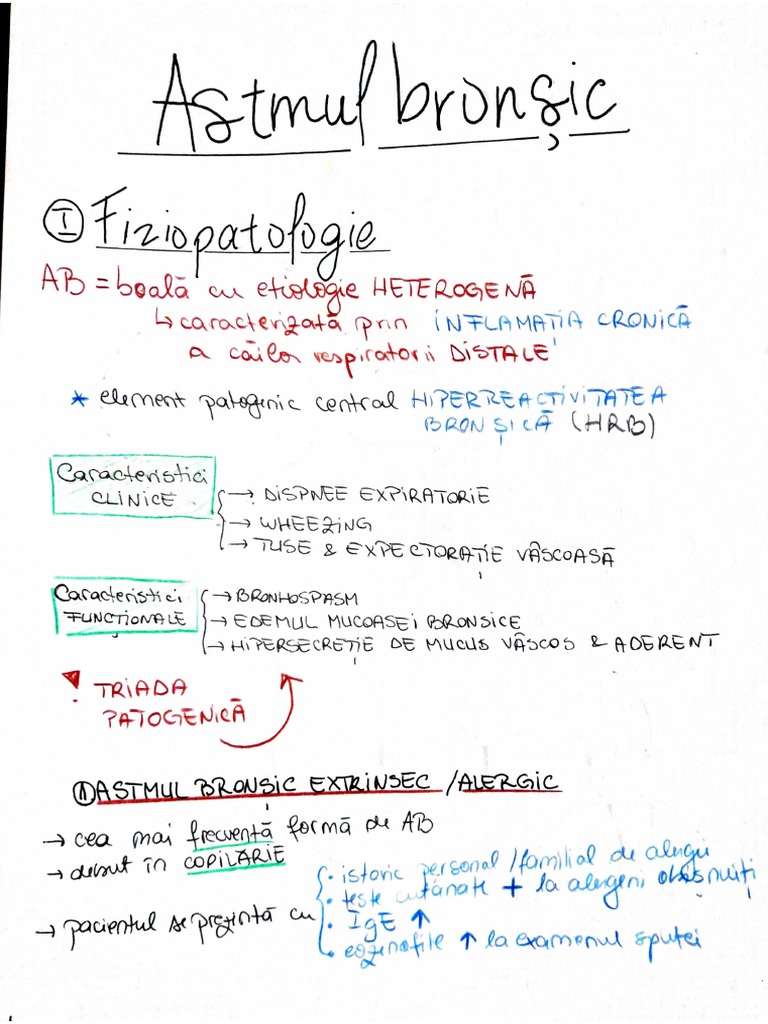 Astmul bronșic
I Fiziopatologie
AB = boală cu etiologie HETEROGENĂ
↳ caracterizată prin INFLAMAȚIA CRONICĂ
a căilor respiratorii DISTALE
* element patogenic central HIPERREACTIVITATEA
BRONȘICĂ (HRB)
Caracteristici
CLINICE
→ DISPNEE EXPIRATORIE
→ WHEEZING
→ TUSE & EXPECTORAȚIE VÂSCOASĂ
Caracteristici
FUNCȚIONALE
→ BRONHOSPASM
→ EDEMUL MUCOASEI BRONSICE
→ HIPERSECREȚIE DE MUCUS VÂSCOS & ADERENT
! TRIADA
PATOGENICĂ
1 ASTMUL BRONȘIC EXTRINSEC / ALERGIC
→ cea mai frecventă formă de AB
→ debut în COPILĂRIE
→ pacientul se prezintă cu
• istoric personal / familial de alergii
• teste cutanate + la alergeni obișnuiți
• IgE ↑
• eozinofile ↑ la examenul sputei